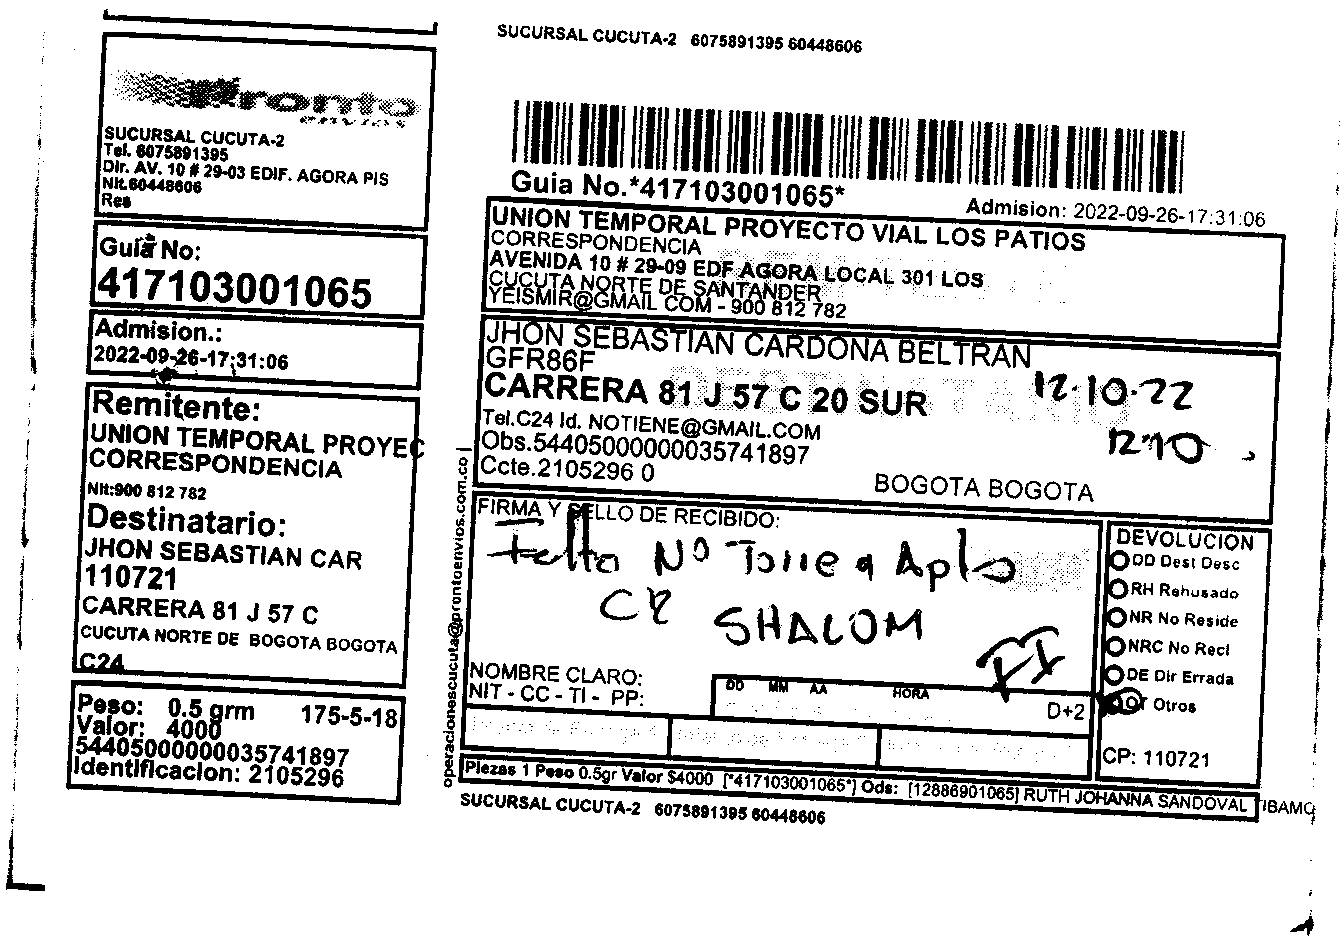 Pronto
envios
SUCURSAL CUCUTA-2
Tel. 6075891395
Dir. AV. 10 # 29-03 EDIF. AGORA PIS
Nit.60448606
Res
Guia No:
417103001065
Admision.:
2022-09-26-17:31:06
Remitente:
UNION TEMPORAL PROYEC
CORRESPONDENCIA
Nit:900 812 782
Destinatario:
JHON SEBASTIAN CAR
110721
CARRERA 81 J 57 C
CUCUTA NORTE DE BOGOTA BOGOTA
C24
Peso: 0.5 grm 175-5-18
Valor: 4000
544050000000035741897
Identificacion: 2105296
SUCURSAL CUCUTA-2 6075891395 60448606
Guia No.*417103001065*
Admision: 2022-09-26-17:31:06
UNION TEMPORAL PROYECTO VIAL LOS PATIOS
CORRESPONDENCIA
AVENIDA 10 # 29-09 EDF AGORA LOCAL 301 LOS
CUCUTA NORTE DE SANTANDER
YEISMIR@GMAIL COM - 900 812 782
JHON SEBASTIAN CARDONA BELTRAN
GFR86F
CARRERA 81 J 57 C 20 SUR
12-10-22
Tel.C24 Id. NOTIENE@GMAIL.COM
12:10
Obs.544050000000035741897
Ccte.2105296 0
BOGOTA BOGOTA
operacionescucuta@prontoenvios.com.co
FIRMA Y SELLO DE RECIBIDO:
Falta Nº Torre a Apto
CR SHALOM
NOMBRE CLARO:
NIT - CC - TI - PP:
DD MM AA HORA
D+2
DEVOLUCION
DD Dest Desc
RH Rehusado
NR No Reside
NRC No Recl
DE Dir Errada
OT Otros
CP: 110721
Piezas 1 Peso 0.5gr Valor $4000 [*417103001065*] Ods: [12886901065] RUTH JOHANNA SANDOVAL TIBAMO
SUCURSAL CUCUTA-2 6075891395 60448606